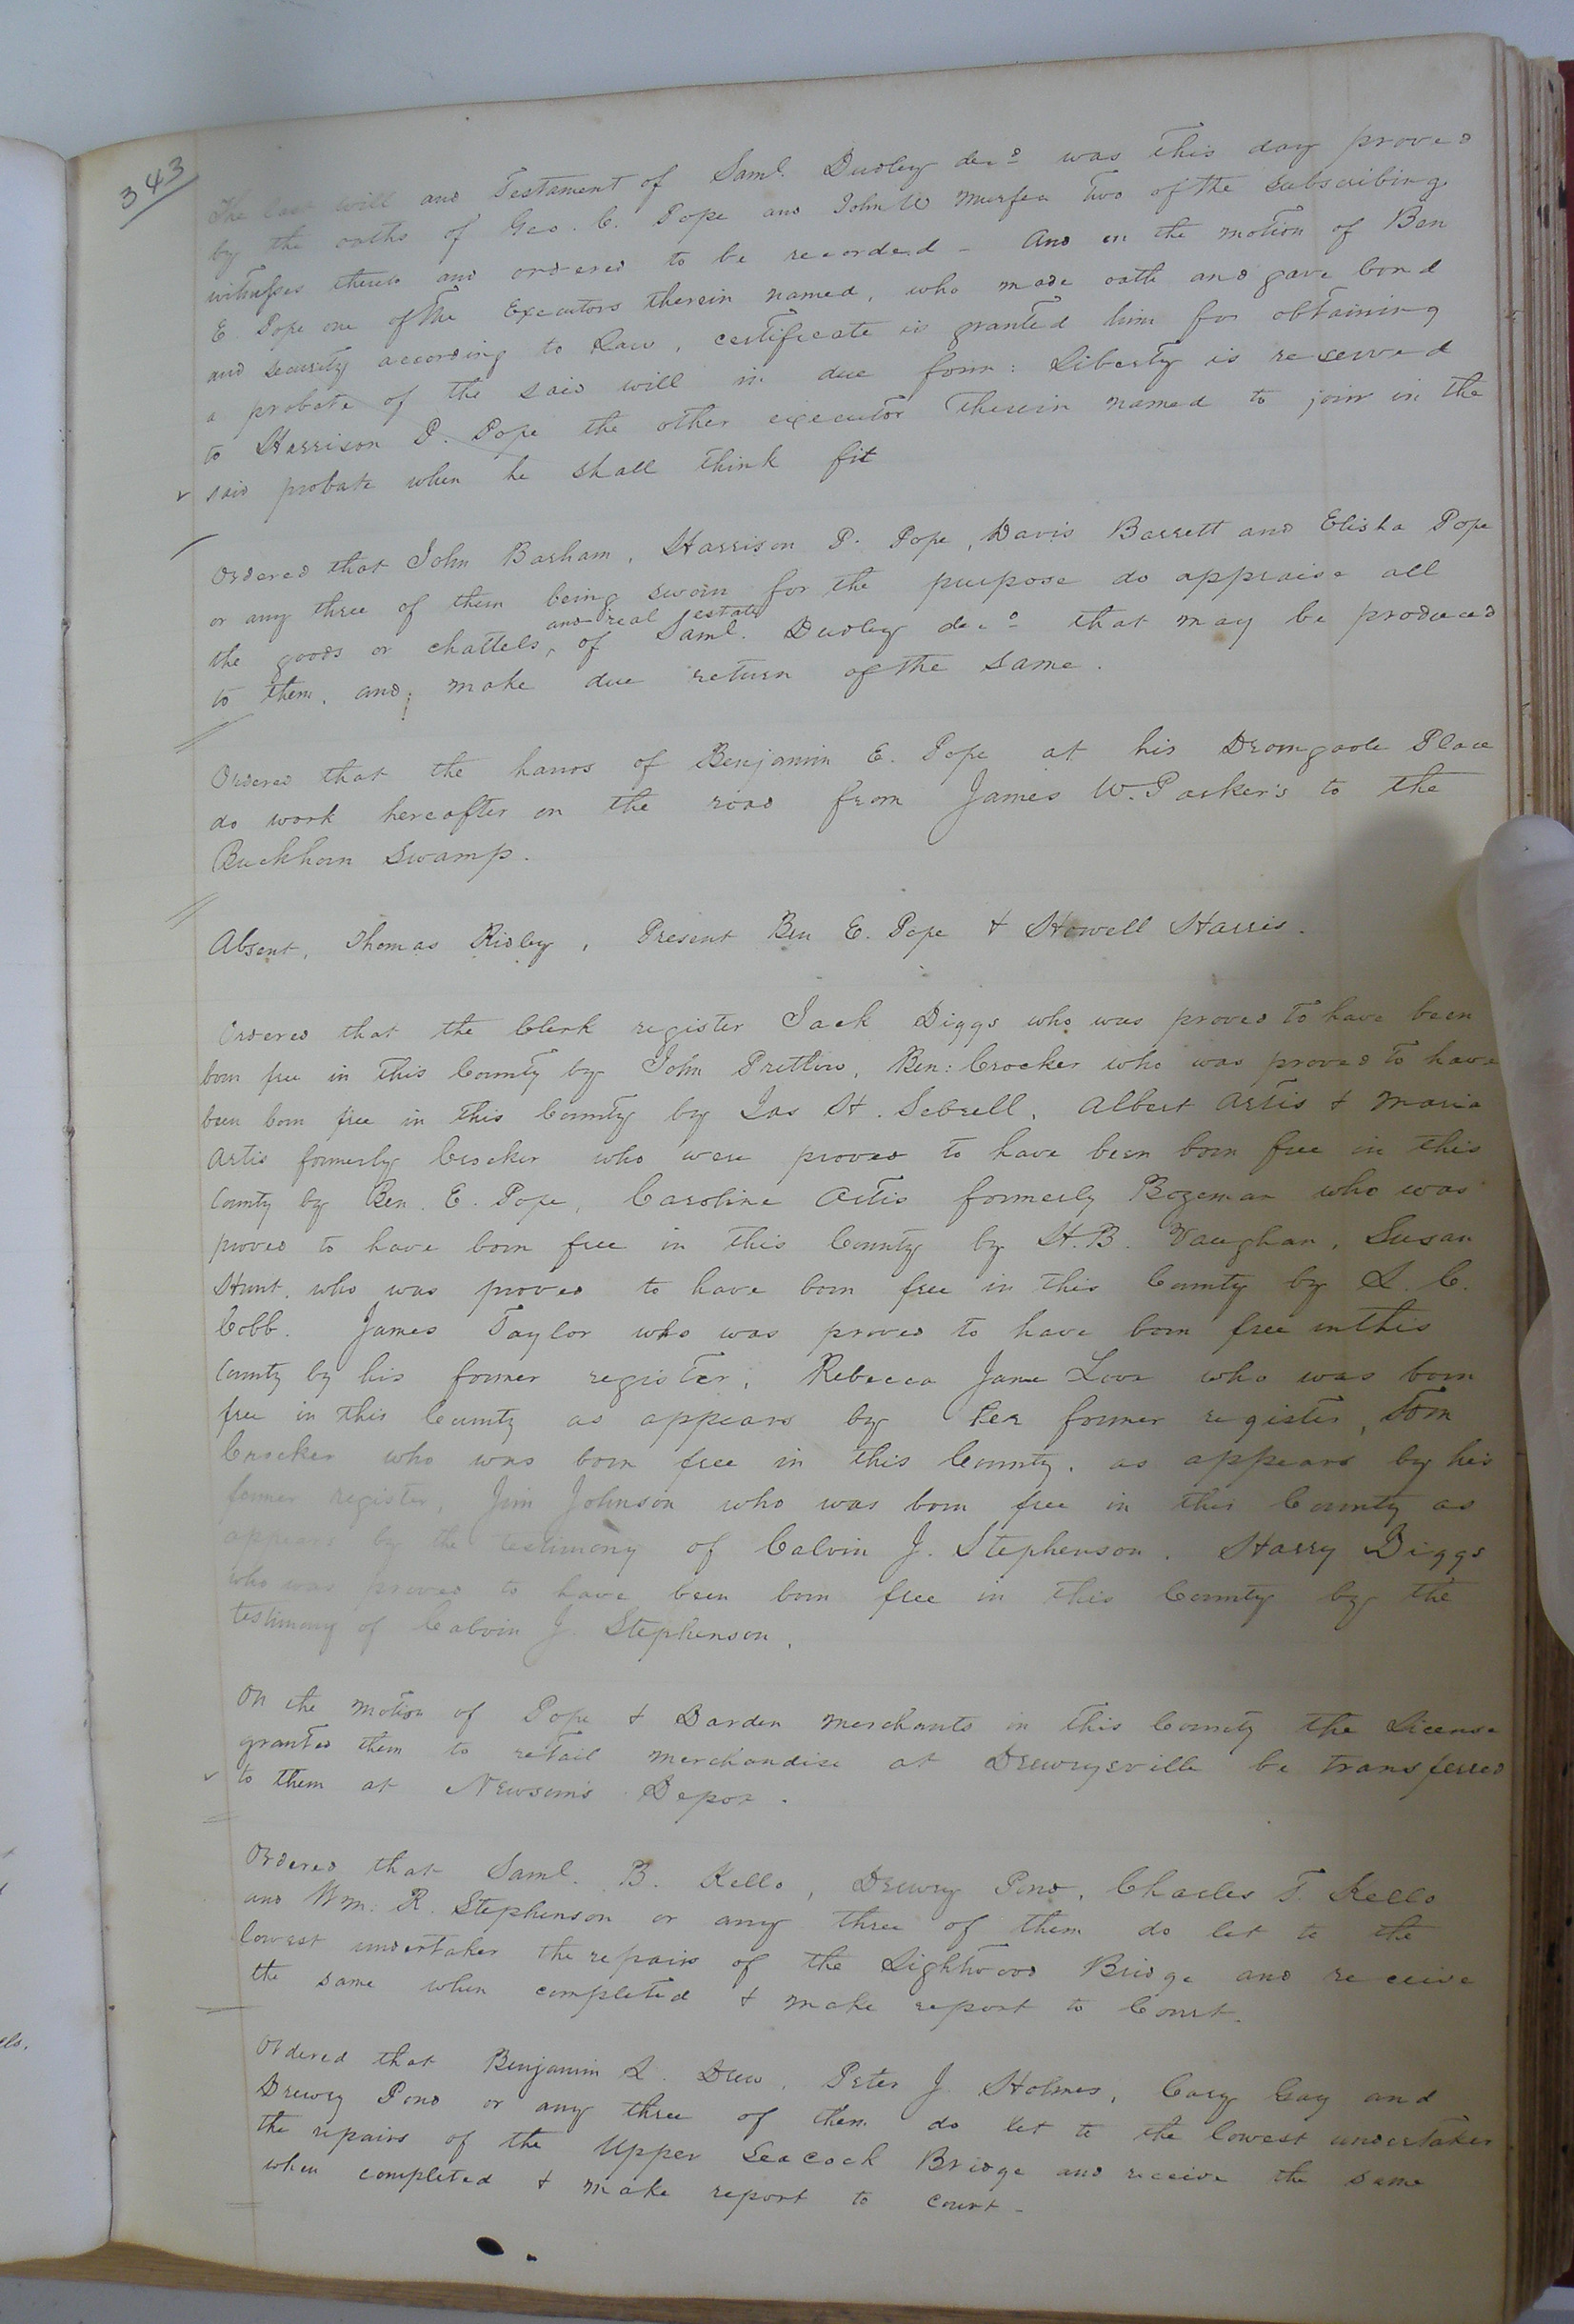 343
The last will and Testament of Saml. Dudley decd was this day proved
by the oaths of Geo. C. Pope and John W Murfee two of the subscribing
witnesses thereto and ordered to be recorded - And on the motion of Ben
E. Pope one of the Executors therein named, who made oath and gave bond
and security according to Law, certificate is granted him for obtaining
a probate of the said will in due form: Liberty is reserved
to Harrison P. Pope the other executor therein named to join in the
said probate when he shall think fit
Ordered that John Barham, Harrison P. Pope, Davis Barrett and Elisha Pope
or any three of them being sworn for the purpose do appraise all
and real estate
the goods or chattels, of Saml. Dudley decd that may be produced
to them, and make due return of the same.
Ordered that the hands of Benjamin E. Pope at his Dromgoole Place
do work hereafter on the road from James W. Parker's to the
Buckhorn Swamp.
Absent, Thomas Ridley, Present Ben E. Pope & Howell Harris.
Ordered that the Clerk register Jack Diggs who was proved to have been
born free in this County by John Pretlow, Ben: Crocker who was proved to have
been born free in this County by Jas H. Sebrell, Albert Artis & Maria
Artis formerly Crocker who were proved to have been born free in this
County by Ben. E. Pope, Caroline Artis formerly Bozeman who was
proved to have born free in this County by H. B. Vaughan, Susan
Hunt, who was proved to have born free in this County by L. C.
Cobb. James Taylor who was proved to have born free in this
County by his former register, Rebecca Jane Love who was born
free in this County as appears by her former register, Tom
Crocker who was born free in this County, as appears by his
former register, Jim Johnson who was born free in this County as
appears by the testimony of Calvin J. Stephenson. Harry Diggs
who was proved to have been born free in this County by the
testimony of Calvin J. Stephenson.
On the motion of Pope & Darden merchants in this County the License
granted them to retail merchandise at Drewrysville be transferred
to them at Newsom's Depot.
Ordered that Saml. B. Kello, Drewry Pond, Charles T. Kello
and Wm. R. Stephenson or any three of them do let to the
lowest undertaker the repairs of the Lightwood Bridge and receive
the same when completed & make report to Court.
Ordered that Benjamin L. Drew, Peter J. Holmes, Cary Gay and
Drewry Pond or any three of them do let to the lowest undertaker
the repairs of the Upper Seacock Bridge and receive the same
when completed & make report to court -